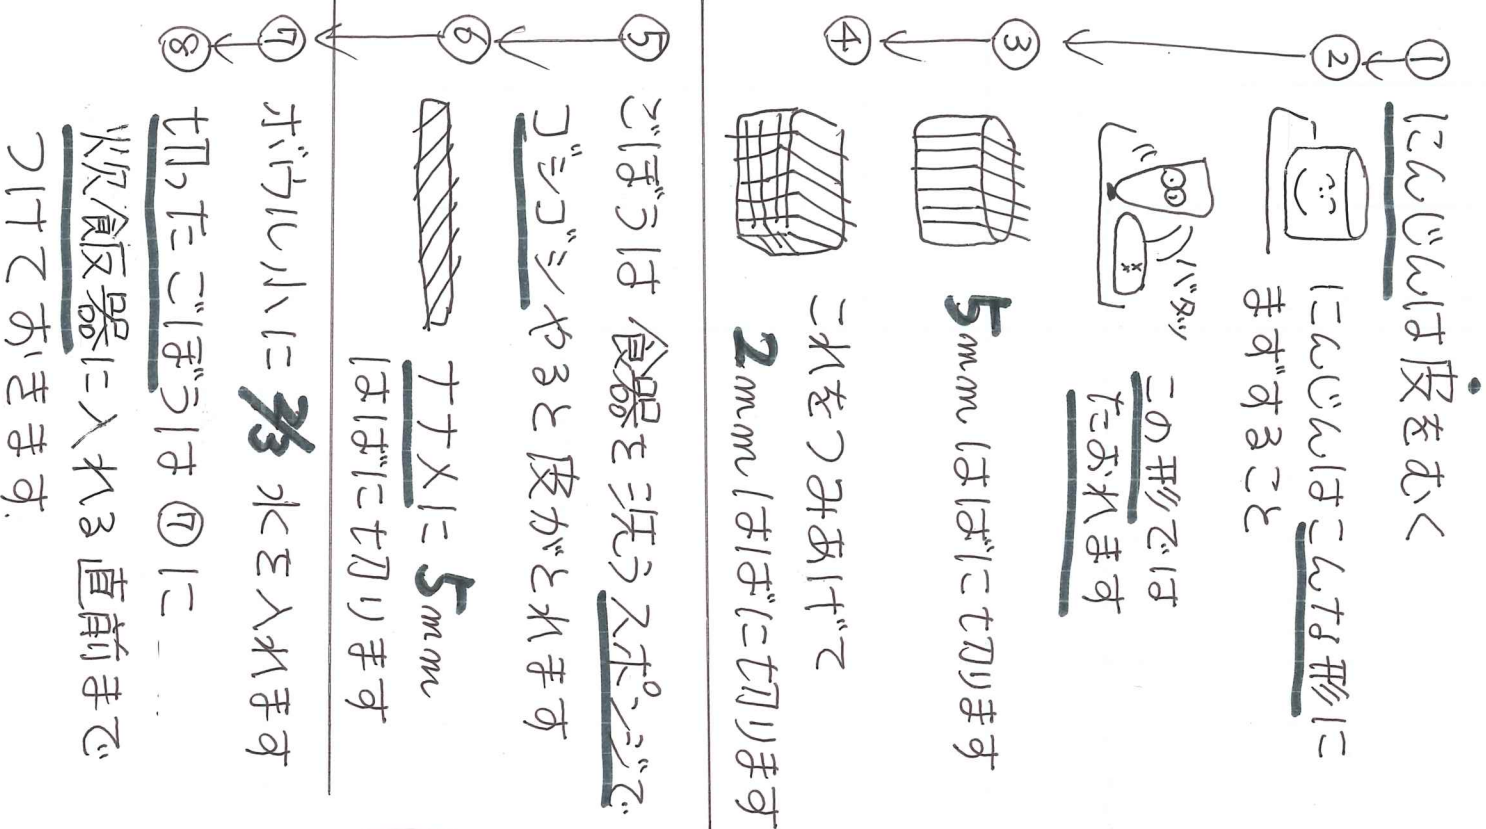 ① にんじんは皮をむく
② にんじんはこんな形に
まずすること
バタッ
この形では
たおれます
③ 5mmはばに切ります
④ これをつみあげて
2mmはばに切ります
⑤ ごぼうは食器を洗うスポンジで
ゴシゴシやると皮がとれます
⑥ ナナメに5mm
はばに切ります
⑦ ボウル小に2/3水を入れます
⑧ 切ったごぼうは⑦に……
炊飯器に入れる直前まで
つけておきます.